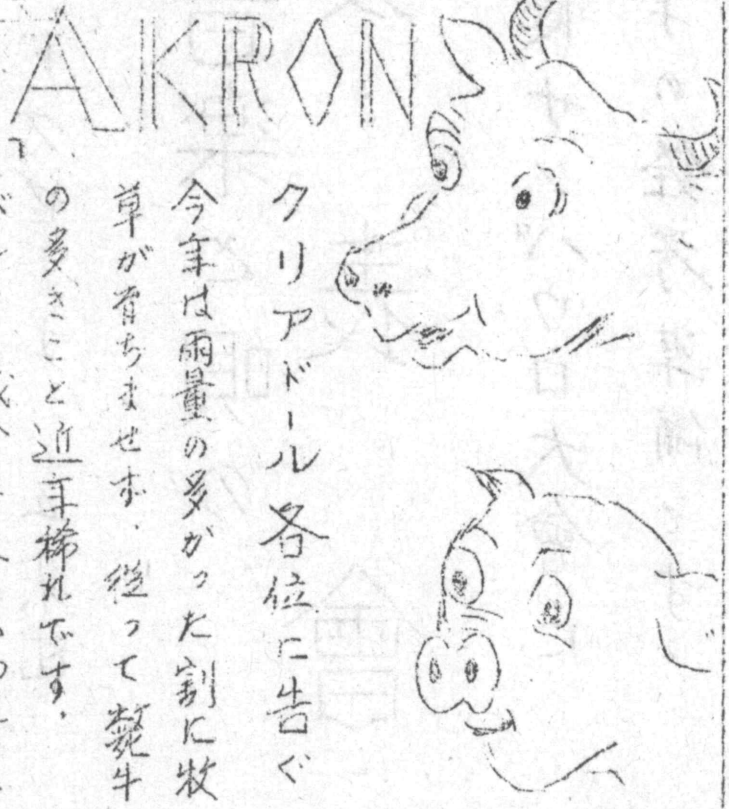 AKRON
クリアドール各位に告ぐ
今年は雨量の多かった割に牧
草が育ちませず、従って斃牛
の多きこと近年稀れです。